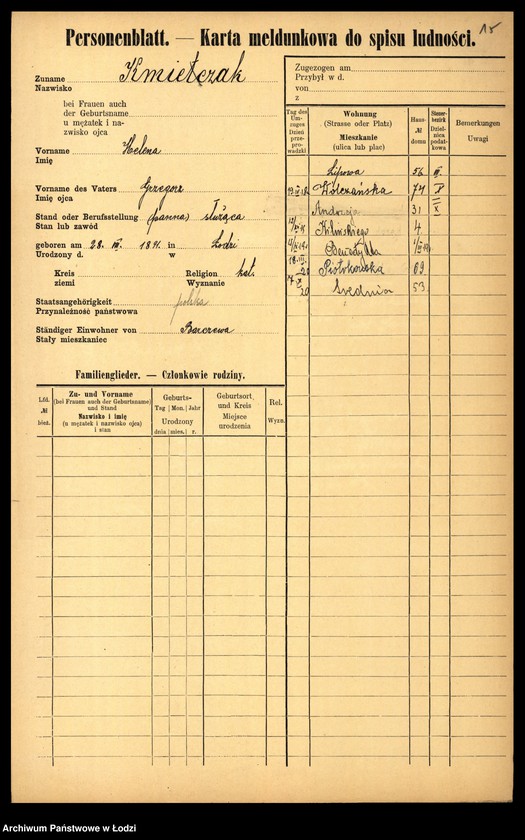 15
Personenblatt. — Karta meldunkowa do spisu ludności.
Zuname Kmietczak
Nazwisko
bei Frauen auch
der Geburtsname
u mężatek i na-
zwisko ojca
Vorname Helena
Imię
Vorname des Vaters Grzegorz
Imię ojca
Stand oder Berufsstellung (panna) służąca
Stan lub zawód
geboren am 28. III. in Łodzi
Urodzony d. w
Kreis Religion kat.
ziemi Wyznanie
Staatsangehörigkeit polska
Przynależność państwowa
Ständiger Einwohner von Barczewa
Stały mieszkaniec
Familienglieder. — Członkowie rodziny.
Lfd. № bież.
Zu- und Vorname
(bei Frauen auch der Geburtsname)
und Stand
Nazwisko i imię
(u mężatek i nazwisko ojca)
i stan
Geburts-
Tag Mon. Jahr
Urodzony
dnia mies. r.
Geburtsort
und Kreis
Miejsce
urodzenia
Rel.
Wyzn.
Zugezogen am
Przybył w d.
von
z
Tag des
Um-
zuges
Dzień
prze-
prowadzki
Wohnung
(Strasse oder Platz)
Mieszkanie
(ulica lub plac)
Haus-
№
domu
Steuer-
bezirk
Dziel-
nica
podat-
kowa
Bemerkungen
Uwagi
Lipowa 56 III.
Wólczańska 74 X
Andrzeja 31 X
Kilińskiego 4
Benedykta
18.III. 20 Piotrkowska 69
20 Średnia 53
Archiwum Państwowe w Łodzi